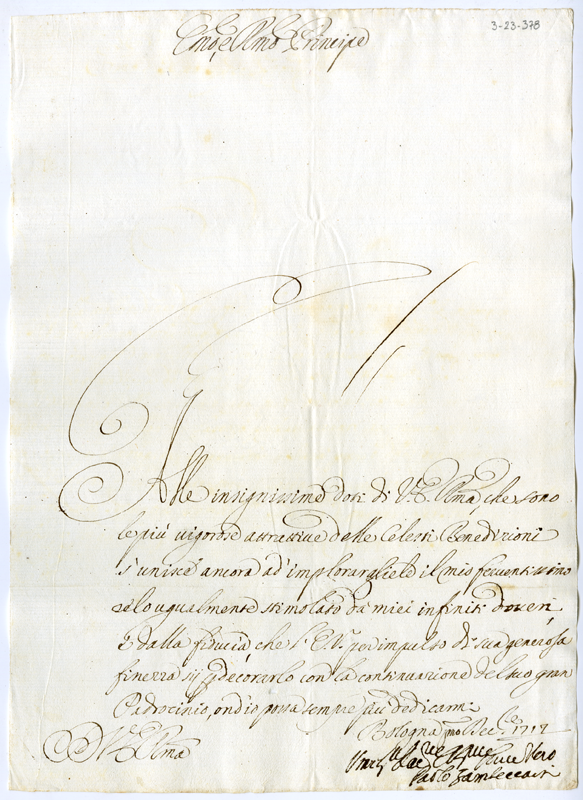 3-23-378
Emo, e Rmo Principe
Alle insignissime doti di V. E. Rma, che sono
le più vigorose attrattive delle Celesti Benedizioni
s'unisce ancora ad' implorargliele il mio ferventissimo
zelo ugualmente stimolato da miei infiniti doveri
e dalla fiducia, che l' E. V. per impulso di sua generosa
finezza sij p decorarlo con la continuazione del suo gran
Padrocinio, ond'io possa sempre più dedicarmi
Bologna Dec. 1717
V. E. Rma
Paolo Zambeccari